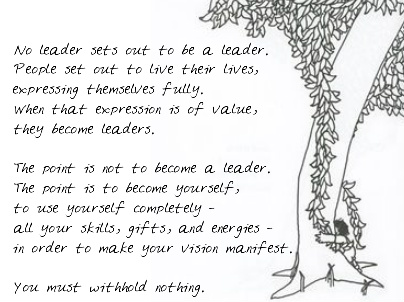 No leader sets out to be a leader.
People set out to live their lives,
expressing themselves fully.
When that expression is of value,
they become leaders.
The point is not to become a leader.
The point is to become yourself,
to use yourself completely -
all your skills, gifts, and energies -
in order to make your vision manifest.
You must withhold nothing.